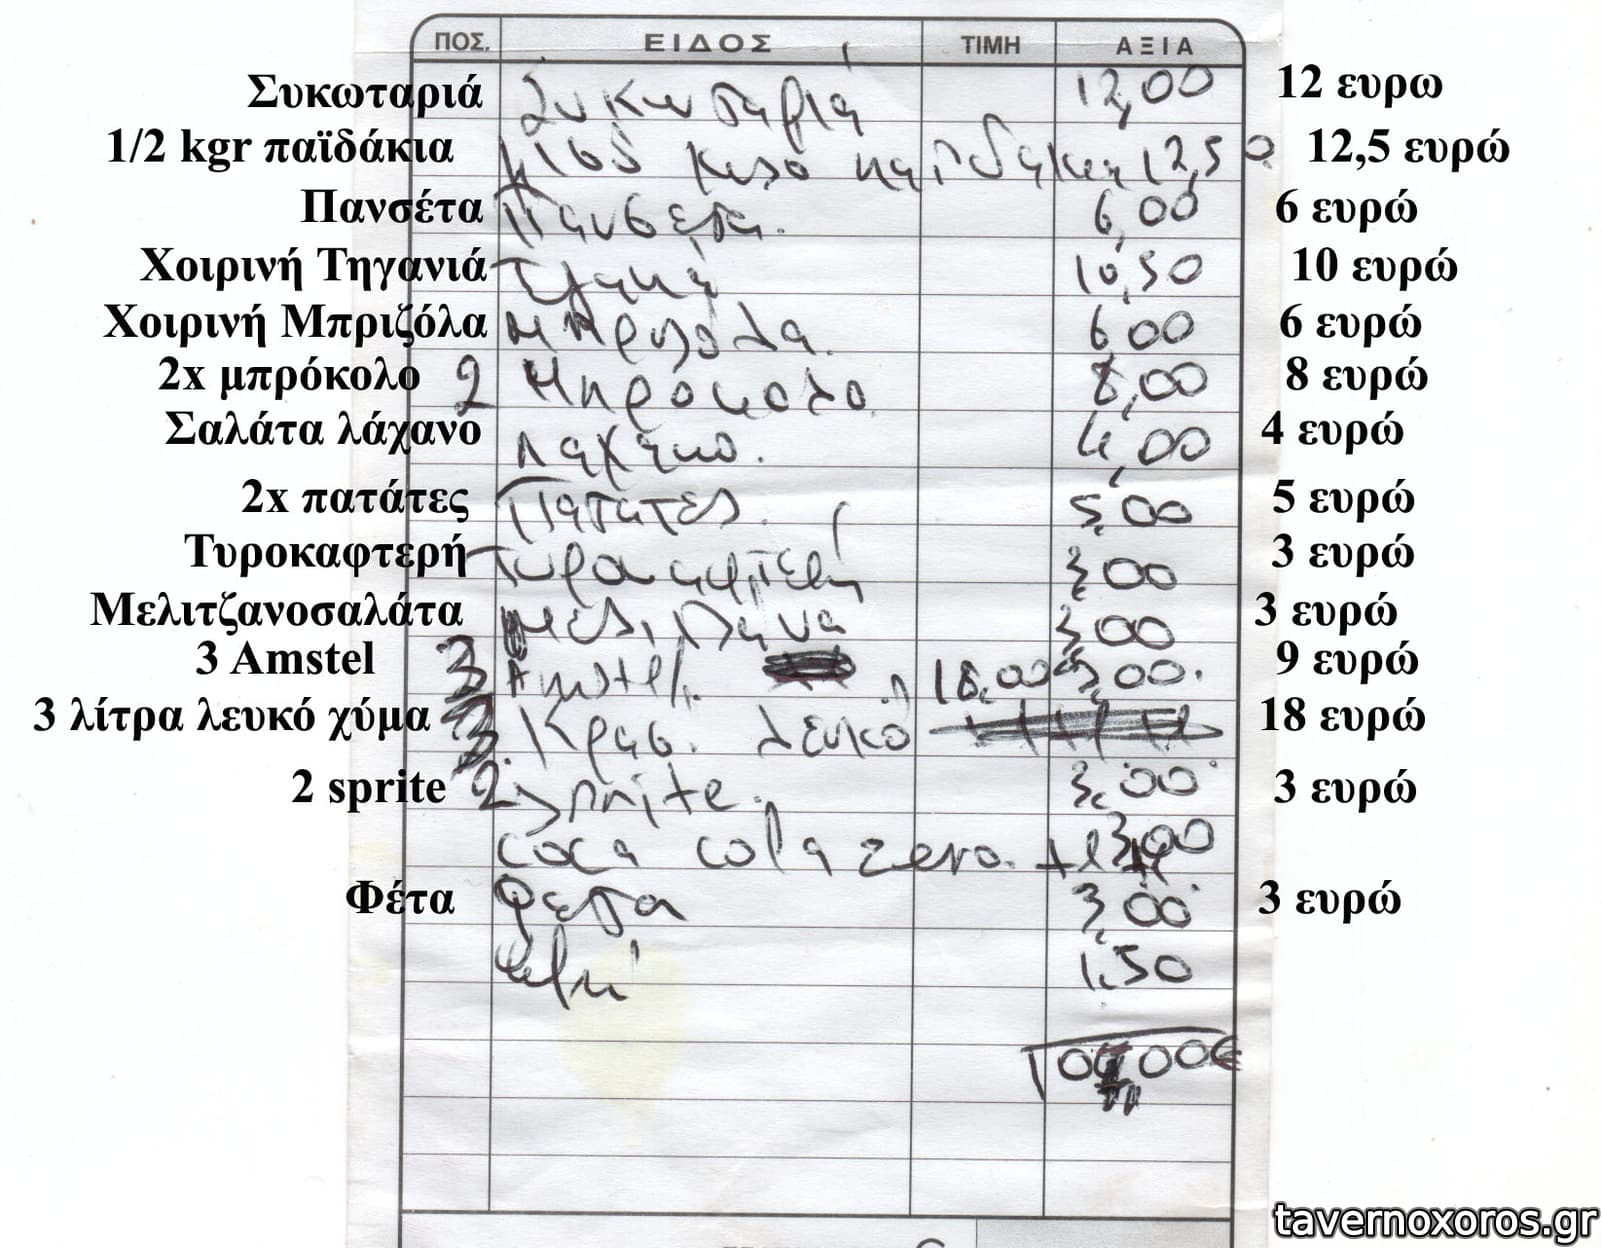 ΠΟΣ. ΕΙΔΟΣ ΤΙΜΗ ΑΞΙΑ
Συκωταριά Συκωταριά 12,00 12 ευρω
1/2 kgr παϊδάκια μισό κιλο παιδακια 12,50 12,5 ευρώ
Πανσέτα Πανσετα. 6,00 6 ευρώ
Χοιρινή Τηγανιά 10,50 10 ευρώ
Χοιρινή Μπριζόλα Μπριζολα. 6,00 6 ευρώ
2x μπρόκολο 2 Μπροκολο 8,00 8 ευρώ
Σαλάτα λάχανο λαχανο. 4,00 4 ευρώ
2x πατάτες Πατατες. 5,00 5 ευρώ
Τυροκαφτερή Τυροκαφτερή 3,00 3 ευρώ
Μελιτζανοσαλάτα 3,00 3 ευρώ
3 Amstel 3 Amstel 18,00 9,00. 9 ευρώ
3 λίτρα λευκό χύμα 3 Κρασ. λευκό 18 ευρώ
2 sprite 2 sprite. 3,00 3 ευρώ
coca cola zero. 3,00
Φέτα Φετα 3,00 3 ευρώ
1,50
00€
tavernoxoros.gr